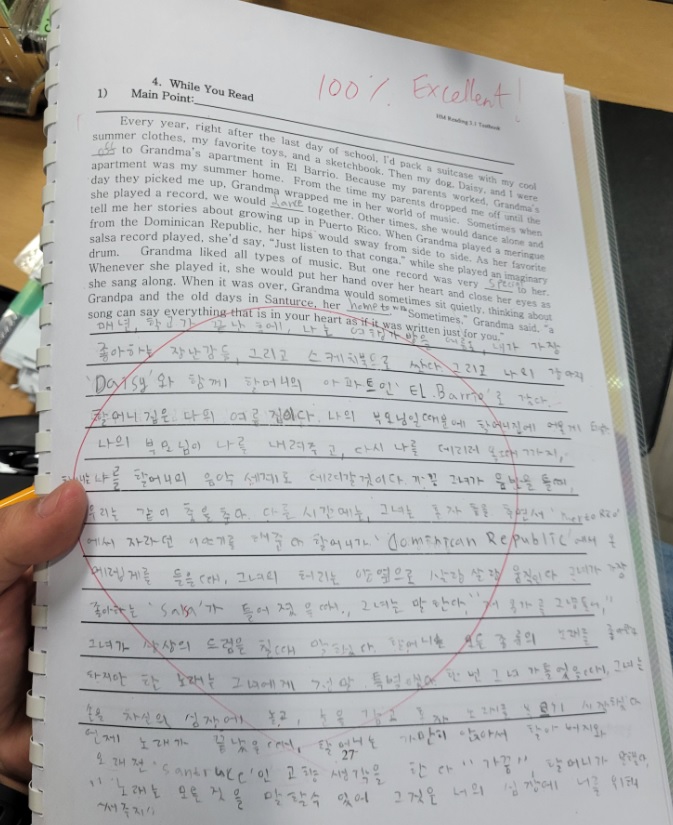 100% Excellent!
4. While You Read
1) Main Point:
HM Reading 2.1 Textbook
Every year, right after the last day of school, I'd pack a suitcase with my cool
summer clothes, my favorite toys, and a sketchbook. Then my dog, Daisy, and I were
off to Grandma's apartment in El Barrio. Because my parents worked, Grandma's
apartment was my summer home. From the time my parents dropped me off until the
day they picked me up, Grandma wrapped me in her world of music. Sometimes when
she played a record, we would dance together. Other times, she would dance alone and
tell me her stories about growing up in Puerto Rico. When Grandma played a meringue
from the Dominican Republic, her hips would away from side to side. As her favorite
salsa record played, she'd say, "Just listen to that conga," while she played an imaginary
drum. Grandma liked all types of music. But one record was very special to her.
Whenever she played it, she would put her hand over her heart and close her eyes as
she sang along. When it was over, Grandma would sometimes sit quietly, thinking about
Grandpa and the old days in Santurce, her hometown "Sometimes," Grandma said, "a
song can say everything that is in your heart as if it was written just for you."
매년, 학교가 끝난 나는
좋아하는 장난감들, 그리고 스케치북으로 그리고 나의 강아지
'Daisy'와 함께 할머니의 아파트인 'EL Barrio'로 갔다.
할머니 집은 나의 여름 집이다. 나의
나의 부모님이 나를 내려주고, 다시 나를 데리러 올때까지,
나를 할머니의 음악 세계로 데려갈것이다. 그녀가
우리는 같이 춤을 춘다. 다른 시간에는, 그녀는 혼자 춤을 추면서
에서 자라던 이야기를 할머니가 'Dominican Republic'에서 온
메렝게를 들을때, 그녀의 허리는 양옆으로 살랑살랑 움직인다 그녀가 가장
좋아하는 'Salsa'가 그녀는 말한다,
그녀가 상상의 드럼을 칠때 말한다. 할머니는 모든 종류의 노래를
하지만 한 노래는 그녀에게 정말 특별했다. 한번 그녀가 그녀는
손을 자신의 심장에 놓고, 눈을 감고 노래를
언제 노래가 끝났을때, 할머니는 가만히 앉아서 할아버지와
27
고향 생각을 한다 "가끔" 할머니가
"노래는 모든 것을 말할수 있어 그것은 너의 심장에 너를 위해